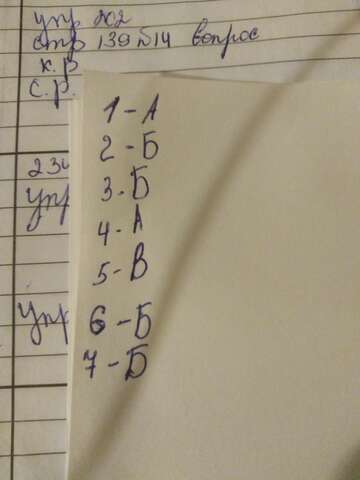 упр 202
стр 139 №14 вопрос
к.р
с.р.
234
Упр
Упр
1-А
2-Б
3-Б
4-А
5-В
6-Б
7-Б